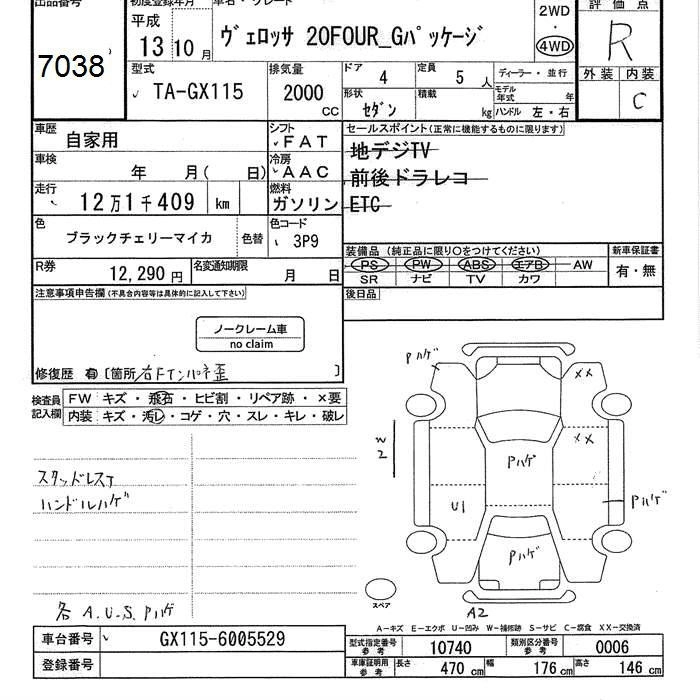 出品番号 初度登録年月 車名・グレード 評価点
平成 ヴェロッサ 20FOUR_Gパッケージ 2WD R
7038 13 10 月 4WD
型式 排気量 ドア 4 定員 5 人 ディーラー・並行 外装 内装
TA-GX115 2000 CC 形状 セダン 積載 kg モデル年式 年 C
ハンドル 左・右
車歴 自家用 シフト FAT セールスポイント(正常に機能するものに限ります)
車検 年 月( 日) 冷房 AAC 地デジTV
走行 12万1千409 km 燃料 ガソリン 前後ドラレコ
ETC
色 ブラックチェリーマイカ 色替 色コード 3P9
装備品(純正品に限り○をつけてください) 新車保証書
R券 12,290 円 名変通知期限 月 日 PS PW ABS エアB AW 有・無
SR ナビ TV カワ
注意事項申告欄(不具合内容等は具体的に記入して下さい) 後日品
ノークレーム車
no claim
修復歴 有 [箇所 右Fインパネ歪 ]
検査員記入欄 FW キズ・飛石・ヒビ割・リペア跡・×要
内装 キズ・汚レ・コゲ・穴・スレ・キレ・破レ
スタッドレス
ハンドルハゲ
各 A.U.S.Pハゲ
Pハゲ
XX
XX
W2
Pハゲ
U1
Pハゲ
Pハゲ
スペア
A2
A-キズ E-エクボ U-凹み W-補修跡 S-サビ C-腐食 XX-交換済
車台番号 GX115-6005529 型式指定番号 参考 10740 類別区分番号 参考 0006
登録番号 車庫証明用 参考 長さ 470 cm 幅 176 cm 高さ 146 cm